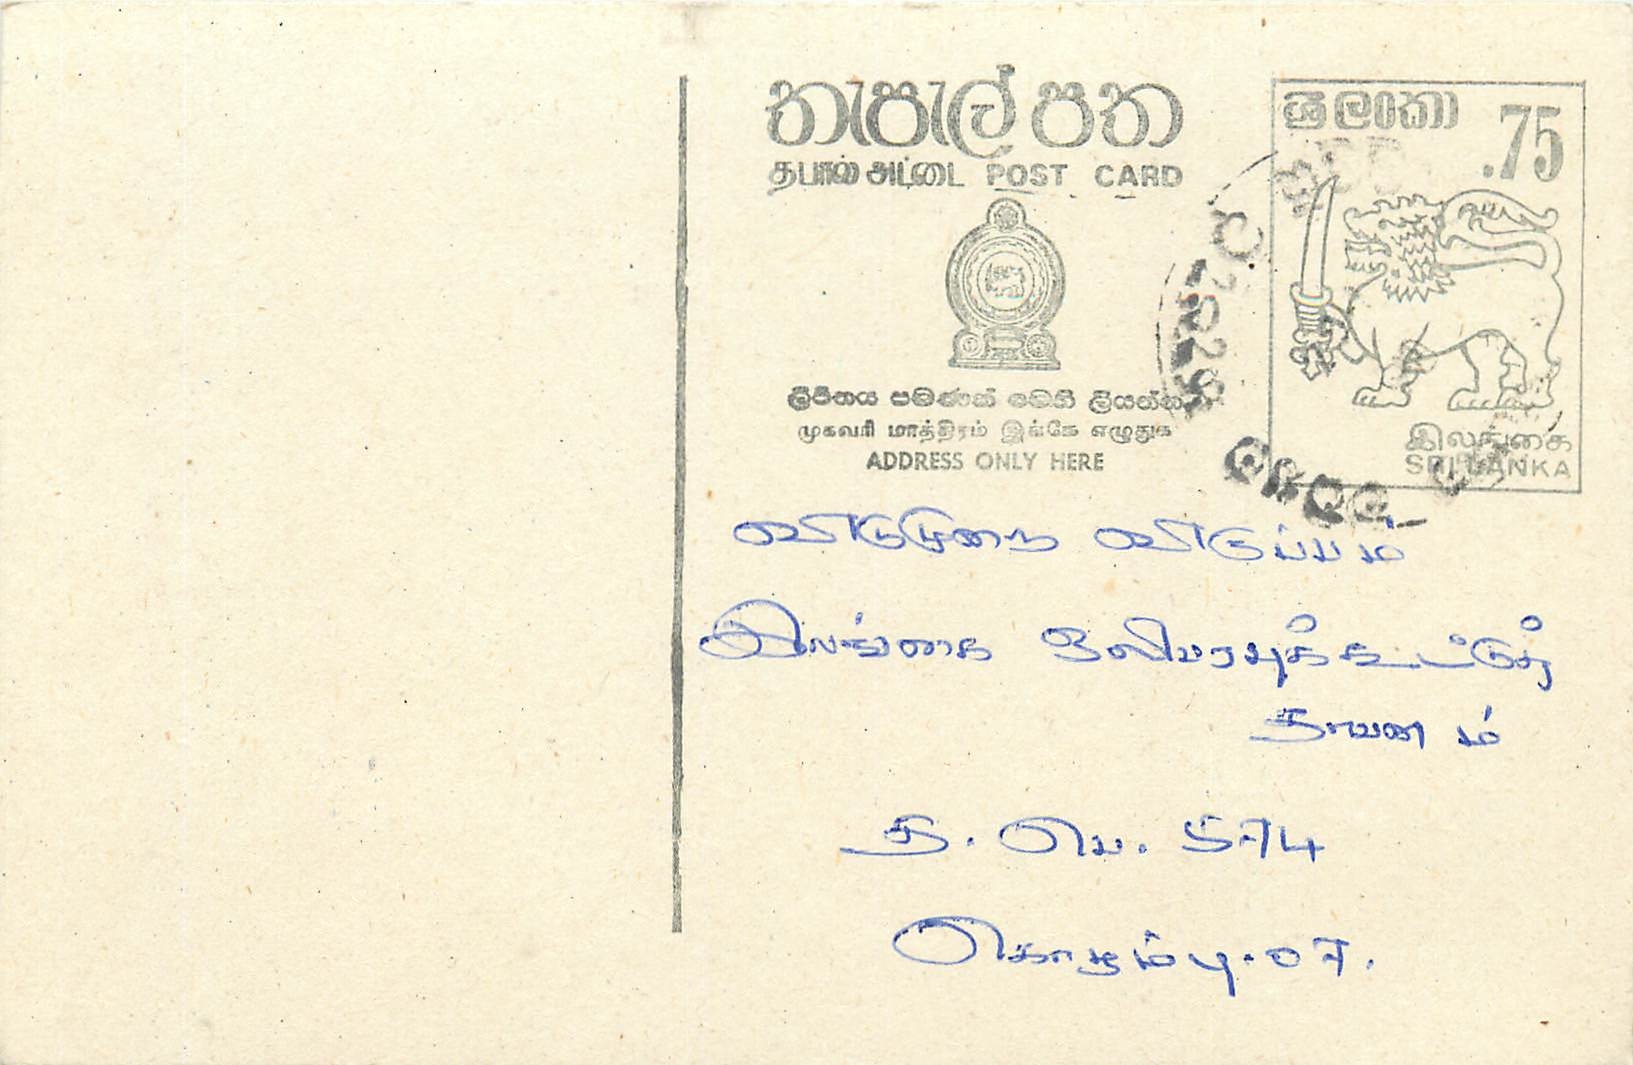 තැපැල් පත
தபால் அட்டை POST CARD
ශ්‍රී ලංකා .75
ලිපිනය පමණක් මෙහි ලියන්න
முகவரி மாத்திரம் இங்கே எழுதுக
ADDRESS ONLY HERE
இலங்கை
SRI LANKA
விடுமுறை விருப்பம்
இலங்கை ஒலிபரபுக்கூட்டுத்
தாபனம்
த. பெ. 574
கொழும்பு.07.